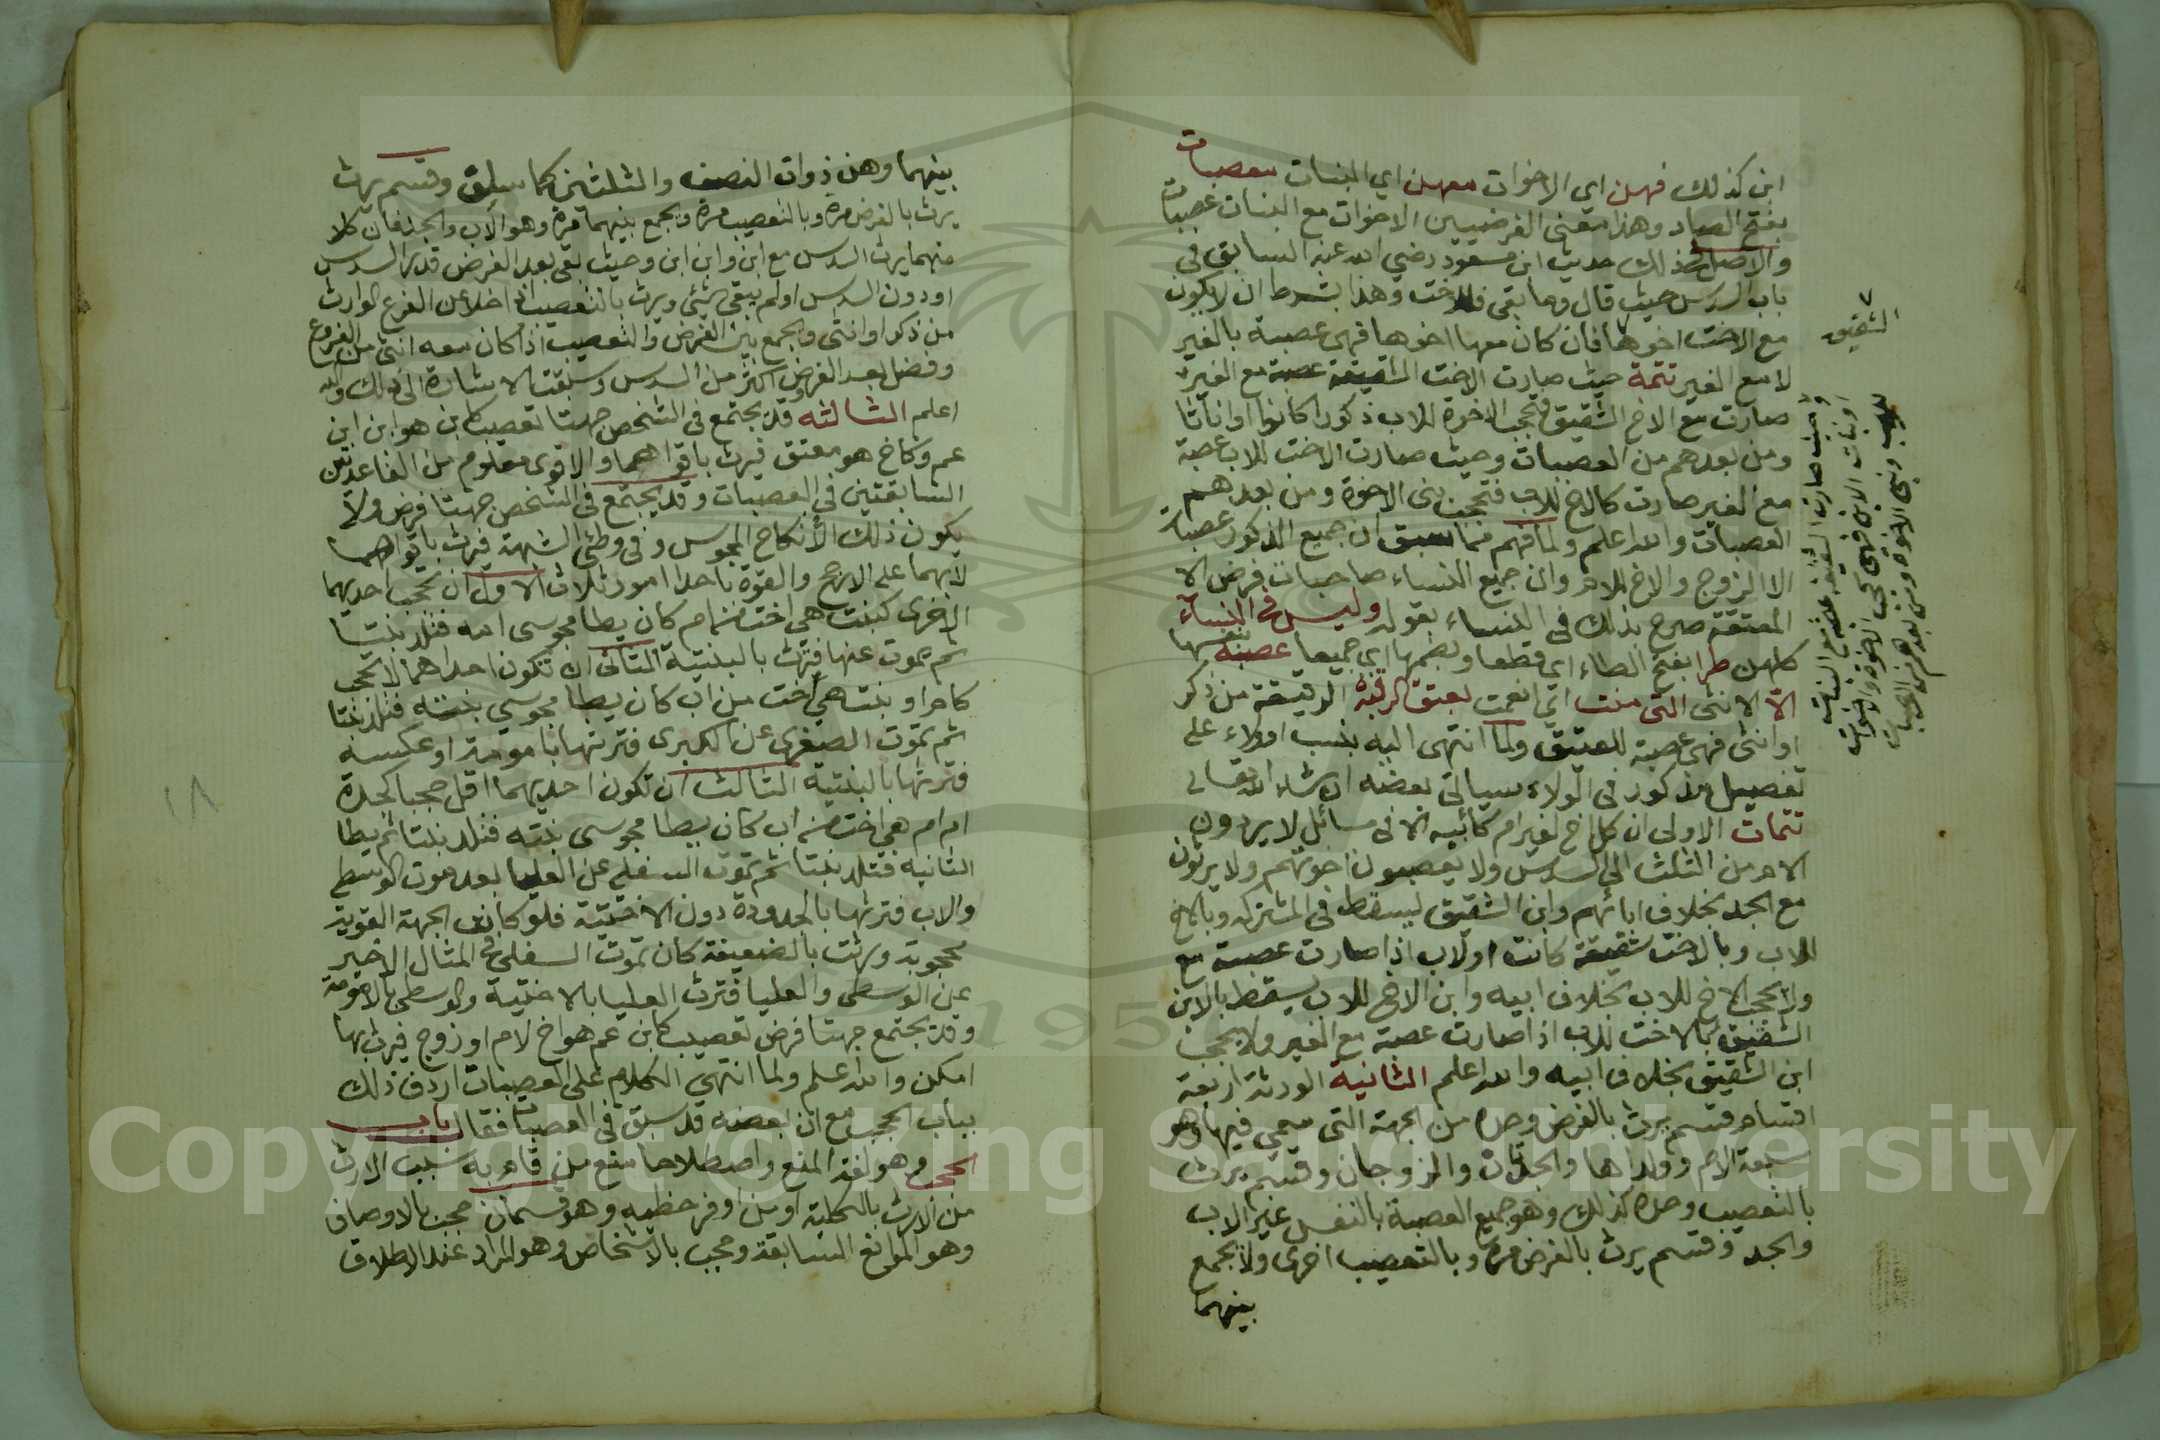 ابن كذلك فهن اي الاخوات معهن اي البنات معصبات
بفتح الصاد وهذا معنى الفرضيين الاخوات مع البنات عصبات
والاصل في ذلك حديث ابن مسعود رضي الله عنه السابق في
باب السدس حيث قال وما بقي فللاخت وهذا بشرط ان لا يكون
مع الاخت اخوها فان كان معها اخوها فهي عصبة بالغير
لا مع الغير تتمة حيث صارت الاخت الشقيقة عصبة مع الغير
صارت مع الاخ الشقيق فتحجب الاخوة للاب ذكورا كانوا او اناثا
ومن بعدهم من العصبات وحيث صارت الاخت للاب عصبة
مع الغير صارت كالاخ للاب فتحجب بني الاخوة ومن بعدهم
العصبات والله اعلم ولما فهم مما سبق ان جميع الذكور عصبات
الا الزوج والاخ للام وان جميع النساء صاحبات فرض الا
المعتقة صرح بذلك في النساء بقوله وليس في النساء
كلهن طرا بفتح الطاء اي قطعا وبضمها اي جميعا عصبة بنفسها
الا الانثى التي منت اي انعمت بعتق الرقبة الرقيقة من ذكر
او انثى فهي عصبة للعتيق ولما انتهى اليه بنسب او ولاء على
تفصيل مذكور في الولاء سياتي بعضه ان شاء الله تعالى
تتمات الاولى ان كل اخ لغير ام كأبيه الا في مسائل لا يردون
الام من الثلث الى السدس ولا يعصبون اخوتهم ولا يرثون
مع الجد بخلاف ابائهم وابن الشقيق يسقط في المشتركة وبالاخ
للاب وبالاخت شقيقة كانت او لاب اذا صارت عصبة مع
ولا يحجب الاخ للاب بخلاف ابيه وابن الاخ للاب يسقط بالابن
الشقيق كالاخت للاب اذا صارت عصبة مع الغير ولا يحجب
ابن الشقيق بخلاف ابيه والله اعلم الثانية الورثة اربعة
اقسام قسم يرث بالفرض وحده من الجهة التي سمي فيها وهو
سبعة الام وولداها والجدتان والزوجان وقسم يرث
بالتعصيب وحده كذلك وهو جميع العصبة بالنفس غير الاب
والجد وقسم يرث بالفرض مرة وبالتعصيب اخرى ولا يجمع
بينهما
الشقيق
بينهما وهن ذوات النصف والثلثين كما سبق وقسم يرث
يرث بالفرض مرة وبالتعصيب مرة ويجمع بينهما مرة وهو الاب والجد فان كلا
منهما يرث السدس مع ابن وابن ابن وحيث بقي بعد الفرض قدر السدس
او دون السدس او لم يبقى شيء ويرث بالتعصيب اذا خلا عن الفرع الوارث
من ذكر او انثى ويجمع بين الفرض والتعصيب اذا كان معه انثى من الفروع
وفضل بعد الفرض اكثر من السدس وسبقت الاشارة الى ذلك والله
اعلم الثالثة وقد يجتمع في الشخص جهتا تعصيب كابن هو ابن ابن
عم وكاخ هو معتق فيرث باقواهما والاقوى معلوم من القاعدتين
السابقتين في العصبات وقد يجتمع في الشخص جهتا فرض ولا
يكون ذلك الا نكاح المجوس وفي وطئ الشبهة فيرث باقواهما
لا بهما على الارجح والقوة باحدا امور ثلاث الاول ان تحجب احديهما
الاخرى كبنت هي اخت من ام كان يطا مجوسي امه فتلد بنتا
ثم يموت عنها فترث بالبنتية الثاني ان تكون احداهما لا تحجب
كام او بنت هي اخت من اب كان يطا مجوسي بنته فتلد بنتا
ثم تموت الصغرى عن الكبرى فترثها بامومة او عكسه
فترثها بالبنتية الثالث ان تكون احديهما اقل حجبا كجدة
ام ام هي اخت من اب كان يطا مجوسي بنته فتلد بنتا ثم يطا
الثانية فتلد بنتا ثم تموت السفلى عن العليا بعد موت الوسطى
والاب فترثها بالجدودة دون الاختية فلو كانت الجهة القوية
محجوبة ورثت بالضعيفة كان تموت السفلى في المثال الاخير
عن الوسطى والعليا فترث العليا بالاختية والوسطى بالامومة
وقد يجتمع جهتا فرض تعصيب كابن عم هو اخ لام او زوج فيرث بها
امكن والله اعلم ولما انتهى الكلام على العصبات اردف ذلك
بباب الحجب مع ان بعضه قد سبق في العصبات فقال باب
الحجب وهو لغة المنع واصطلاحا منع من قام به سبب الارث
من الارث بالكلية او من اوفر حظيه وهو قسمان حجب بالاوصاف
وهو الموانع السابقة وحجب بالاشخاص وهو المراد عند الاطلاق
١٨
Copyright © King Saud University
1957